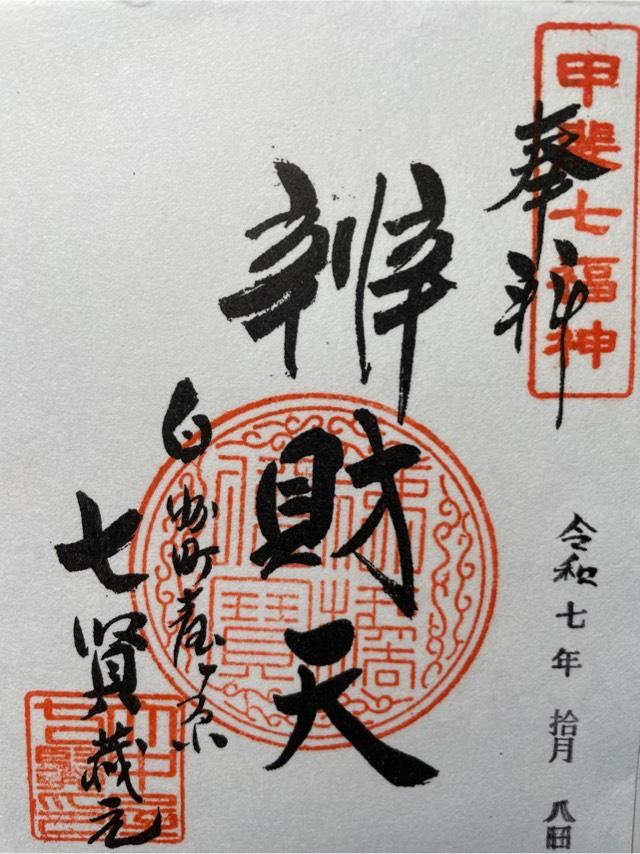 甲斐七福神
奉拝
令和七年 拾月 八日
辨財天
白州町臺ヶ原
七賢蔵元